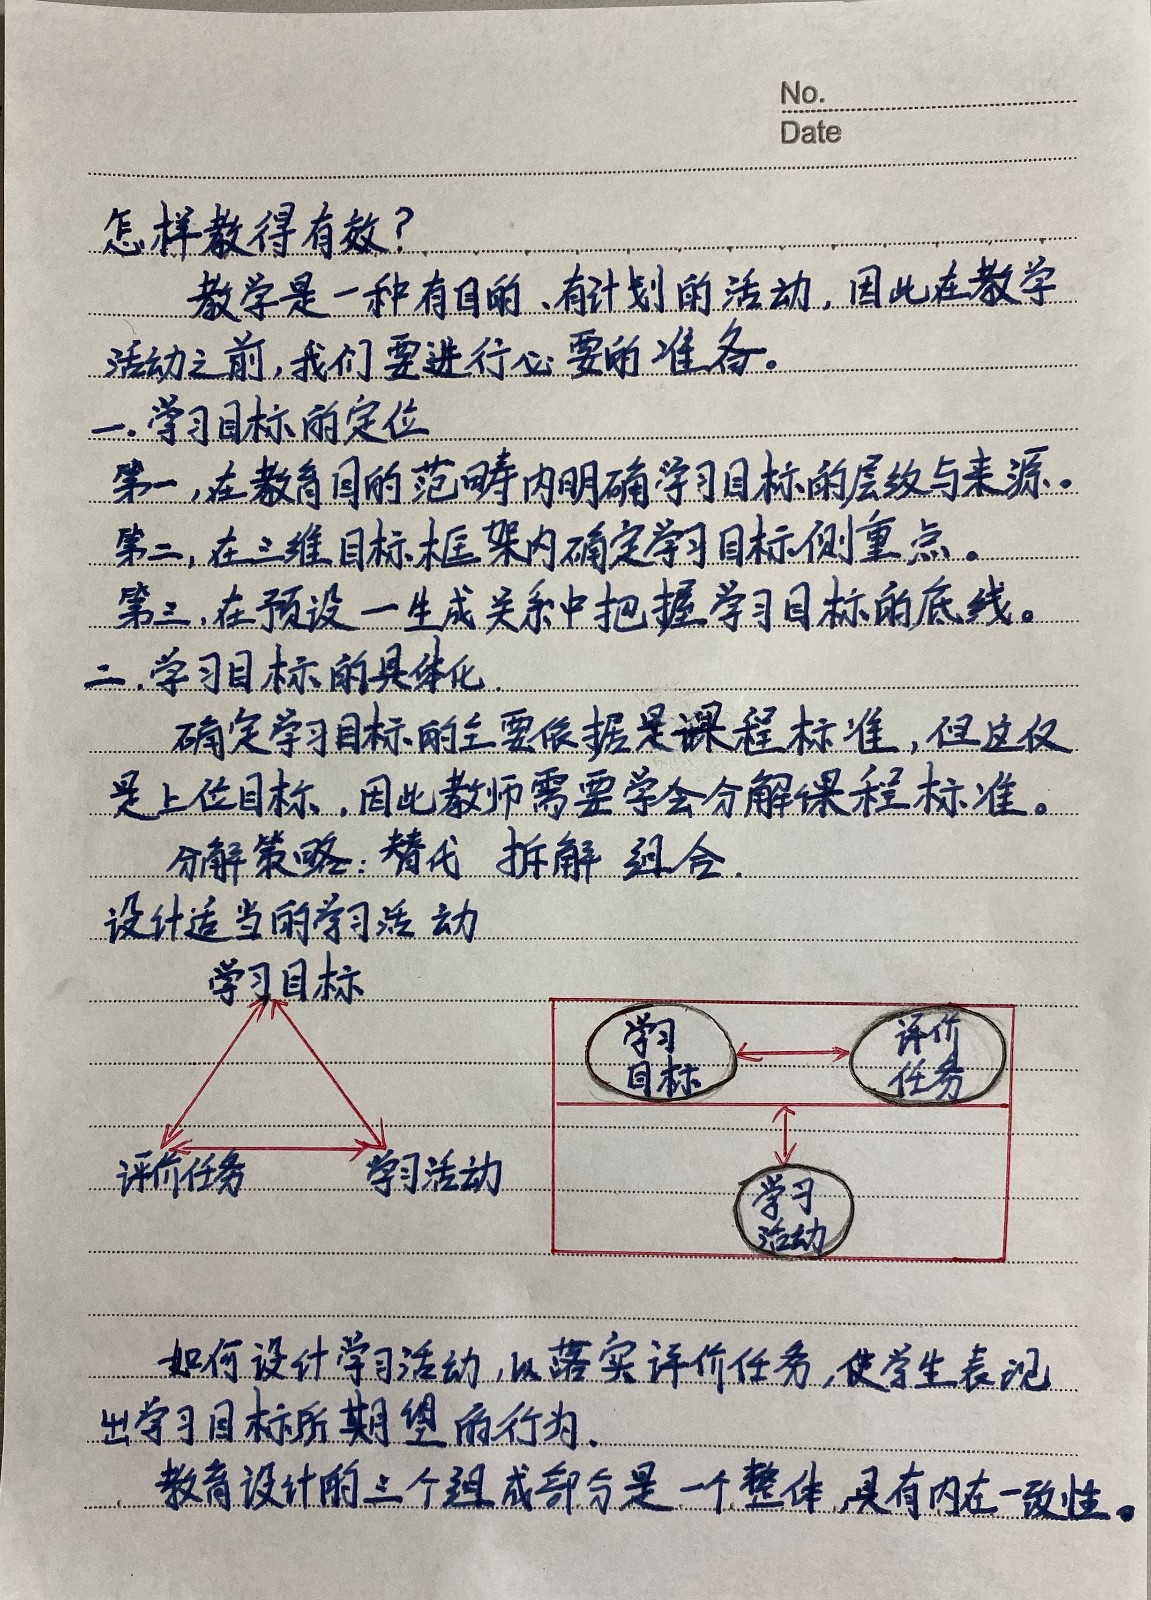 No.
Date
怎样教得有效?
教学是一种有目的、有计划的活动,因此在教学
活动之前,我们要进行必要的准备。
一.学习目标的定位
第一,在教育目的范畴内明确学习目标的层级与来源。
第二,在三维目标框架内确定学习目标侧重点。
第三,在预设一生成关系中把握学习目标的底线。
二.学习目标的具体化.
确定学习目标的主要依据是课程标准,但这仅
是上位目标,因此教师需要学会分解课程标准。
分解策略:替代 拆解 组合.
设计适当的学习活动
学习目标
评价任务
学习活动
学习
目标
评价
任务
学习
活动
如何设计学习活动,以落实评价任务,使学生表现
出学习目标所期望的行为.
教育设计的三个组成部分是一个整体,具有内在一致性。